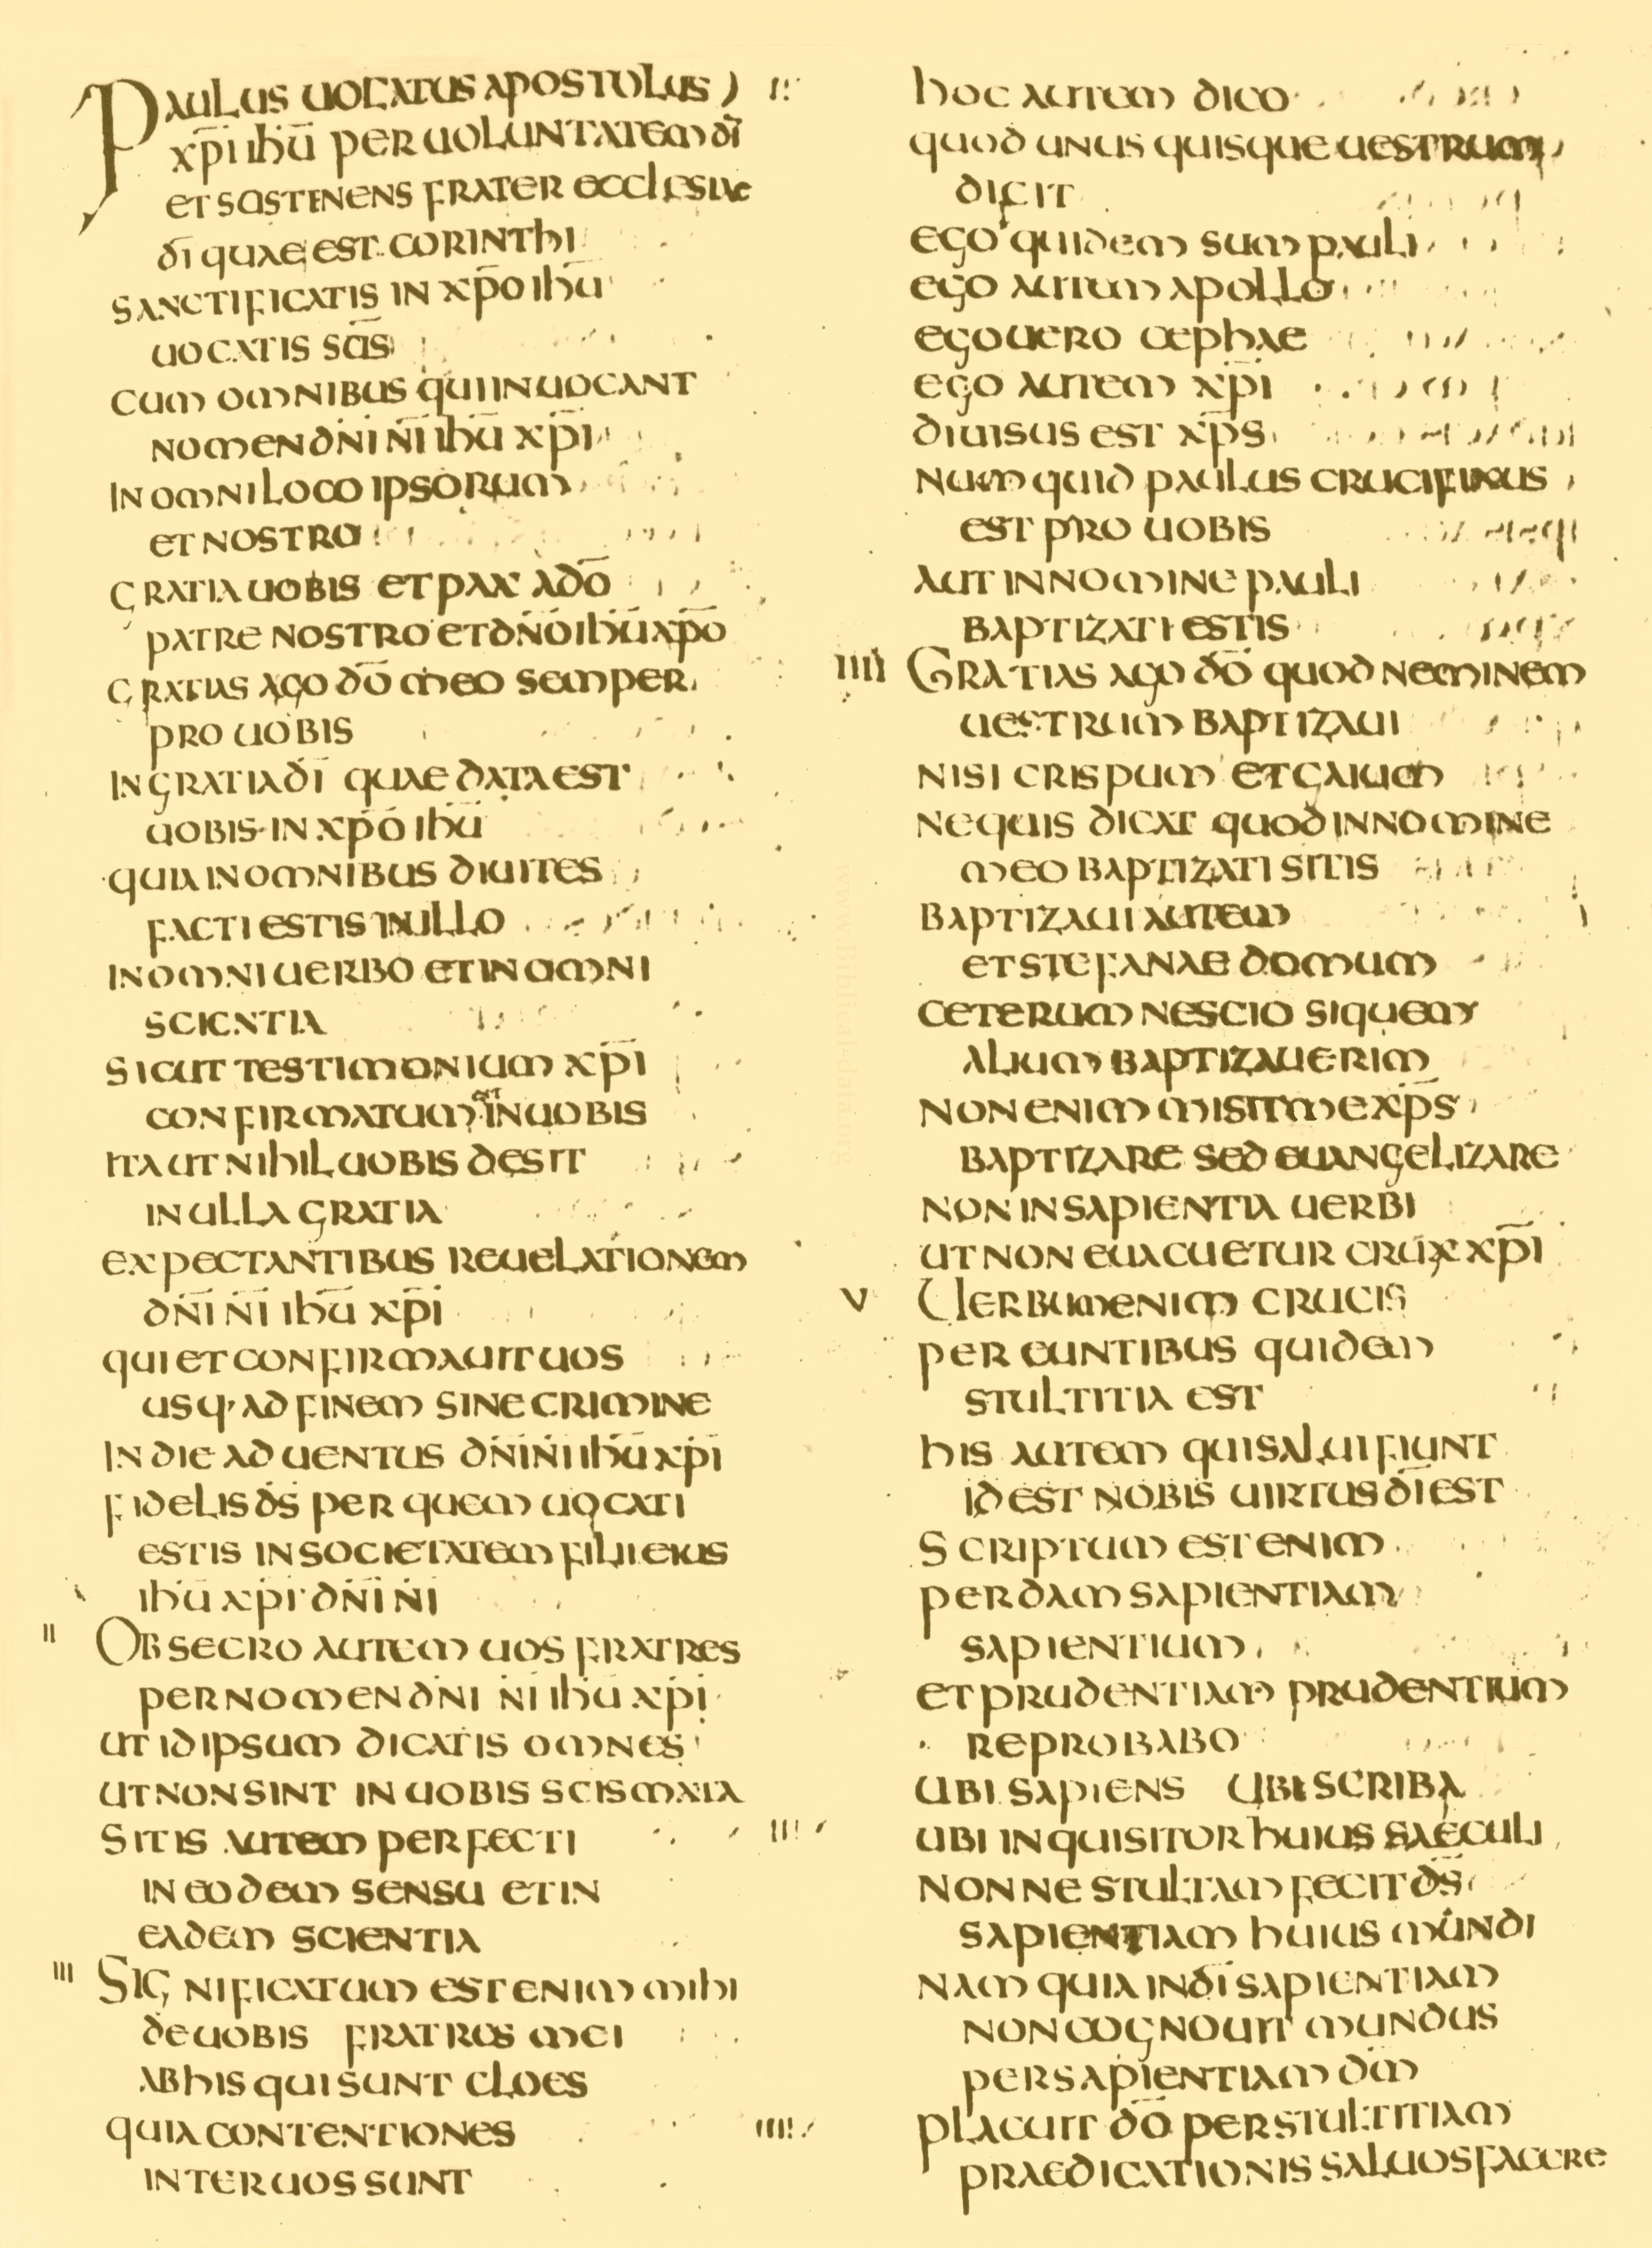 PAULUS UOCATUS APOSTOLUS
XP̅I IHU̅ PER UOLUNTATEM DI̅
ET SOSTENENS FRATER ECCLESIAE
DI̅ QUAE EST CORINTHI
SANCTIFICATIS IN XP̅O IHU̅
UOCATIS SC̅IS
CUM OMNIBUS QUI INUOCANT
NOMEN DN̅I N̅I IHU̅ XP̅I
IN OMNI LOCO IPSORUM
ET NOSTRO
GRATIA UOBIS ET PAX A DO̅
PATRE NOSTRO ET DN̅O IHU̅ XP̅O
GRATIAS AGO DO̅ MEO SEMPER
PRO UOBIS
IN GRATIA DI̅ QUAE DATA EST
UOBIS IN XP̅O IHU̅
QUIA IN OMNIBUS DIUITES
FACTI ESTIS IN ILLO
IN OMNI UERBO ET IN OMNI
SCIENTIA
SICUT TESTIMONIUM XP̅I
CONFIRMATUM EST IN UOBIS
ITA UT NIHIL UOBIS DESIT
IN ULLA GRATIA
EXPECTANTIBUS REUELATIONEM
DN̅I N̅I IHU̅ XP̅I
QUI ET CONFIRMAUIT UOS
USQ· AD FINEM SINE CRIMINE
IN DIE ADUENTUS DN̅I N̅I IHU̅ XP̅I
FIDELIS DS̅ PER QUEM UOCATI
ESTIS IN SOCIETATEM FILII EIUS
IHU̅ XP̅I DN̅I N̅I
II OBSECRO AUTEM UOS FRATRES
PER NOMEN DN̅I N̅I IHU̅ XP̅I
UT ID IPSUM DICATIS OMNES
UT NON SINT IN UOBIS SCISMATA
SITIS AUTEM PERFECTI
IN EODEM SENSU ET IN
EADEM SCIENTIA
III SIGNIFICATUM EST ENIM MIHI
DE UOBIS FRATRES MEI
AB HIS QUI SUNT CLOES
QUIA CONTENTIONES
INTER UOS SUNT
HOC AUTEM DICO
QUOD UNUSQUISQUE UESTRUM
DICIT
EGO QUIDEM SUM PAULI
EGO AUTEM APOLLO
EGO UERO CEPHAE
EGO AUTEM XP̅I
DIUISUS EST XP̅S
NUMQUID PAULUS CRUCIFIXUS
EST PRO UOBIS
AUT IN NOMINE PAULI
BAPTIZATI ESTIS
IIII GRATIAS AGO DO̅ QUOD NEMINEM
UESTRUM BAPTIZAUI
NISI CRISPUM ET GAIUM
NE QUIS DICAT QUOD IN NOMINE
MEO BAPTIZATI SITIS
BAPTIZAUI AUTEM
ET STEFANAE DOMUM
CETERUM NESCIO SI QUEM
ALIUM BAPTIZAUERIM
NON ENIM MISIT ME XP̅S
BAPTIZARE SED EUANGELIZARE
NON IN SAPIENTIA UERBI
UT NON EUACUETUR CRUX XP̅I
V UERBUM ENIM CRUCIS
PEREUNTIBUS QUIDEM
STULTITIA EST
HIS AUTEM QUI SALUI FIUNT
ID EST NOBIS UIRTUS DI̅ EST
SCRIPTUM EST ENIM
PERDAM SAPIENTIAM
SAPIENTIUM
ET PRUDENTIAM PRUDENTIUM
REPROBABO
UBI SAPIENS UBI SCRIBA
UBI INQUISITOR HUIUS SAECULI
NONNE STULTAM FECIT DS̅
SAPIENTIAM HUIUS MUNDI
NAM QUIA IN DI̅ SAPIENTIAM
NON COGNOUIT MUNDUS
PER SAPIENTIAM DM̅
PLACUIT DO̅ PER STULTITIAM
PRAEDICATIONIS SALUOS FACERE
www.Biblical-data.org